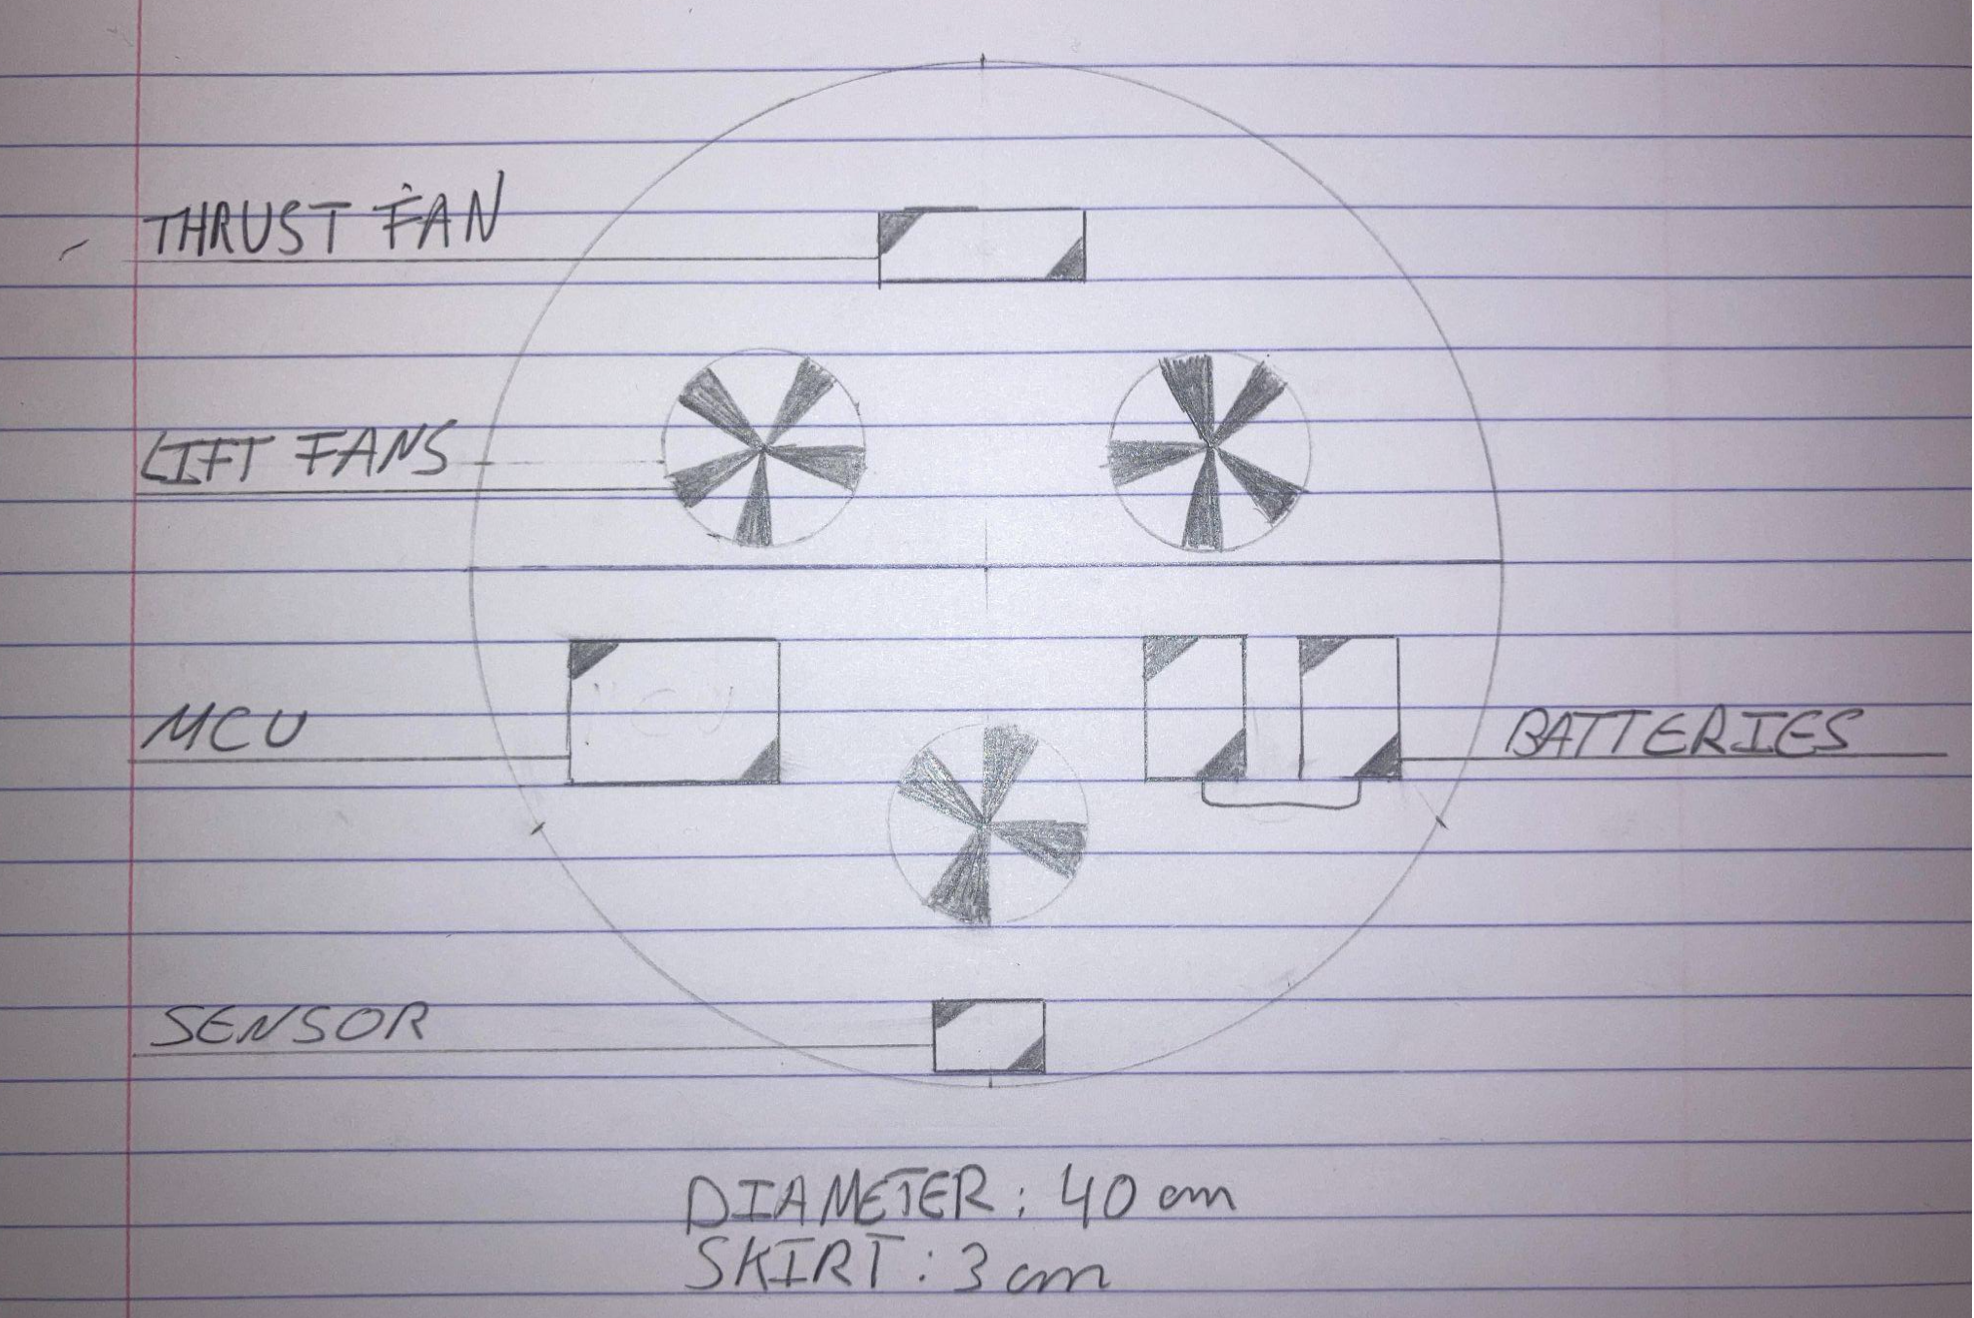 THRUST FAN
LIFT FANS
MCU
MCU
BATTERIES
SENSOR
DIAMETER: 40 cm
SKIRT: 3 cm